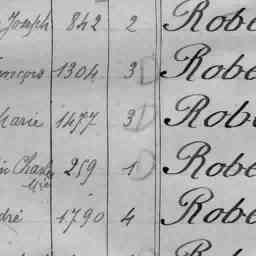 Joseph 842 2 Robe
ançois 1304 3 D Robe
Marie 1477 3 D Robe
in Charles 259 1 D Robe
dré 1790 4 Robe